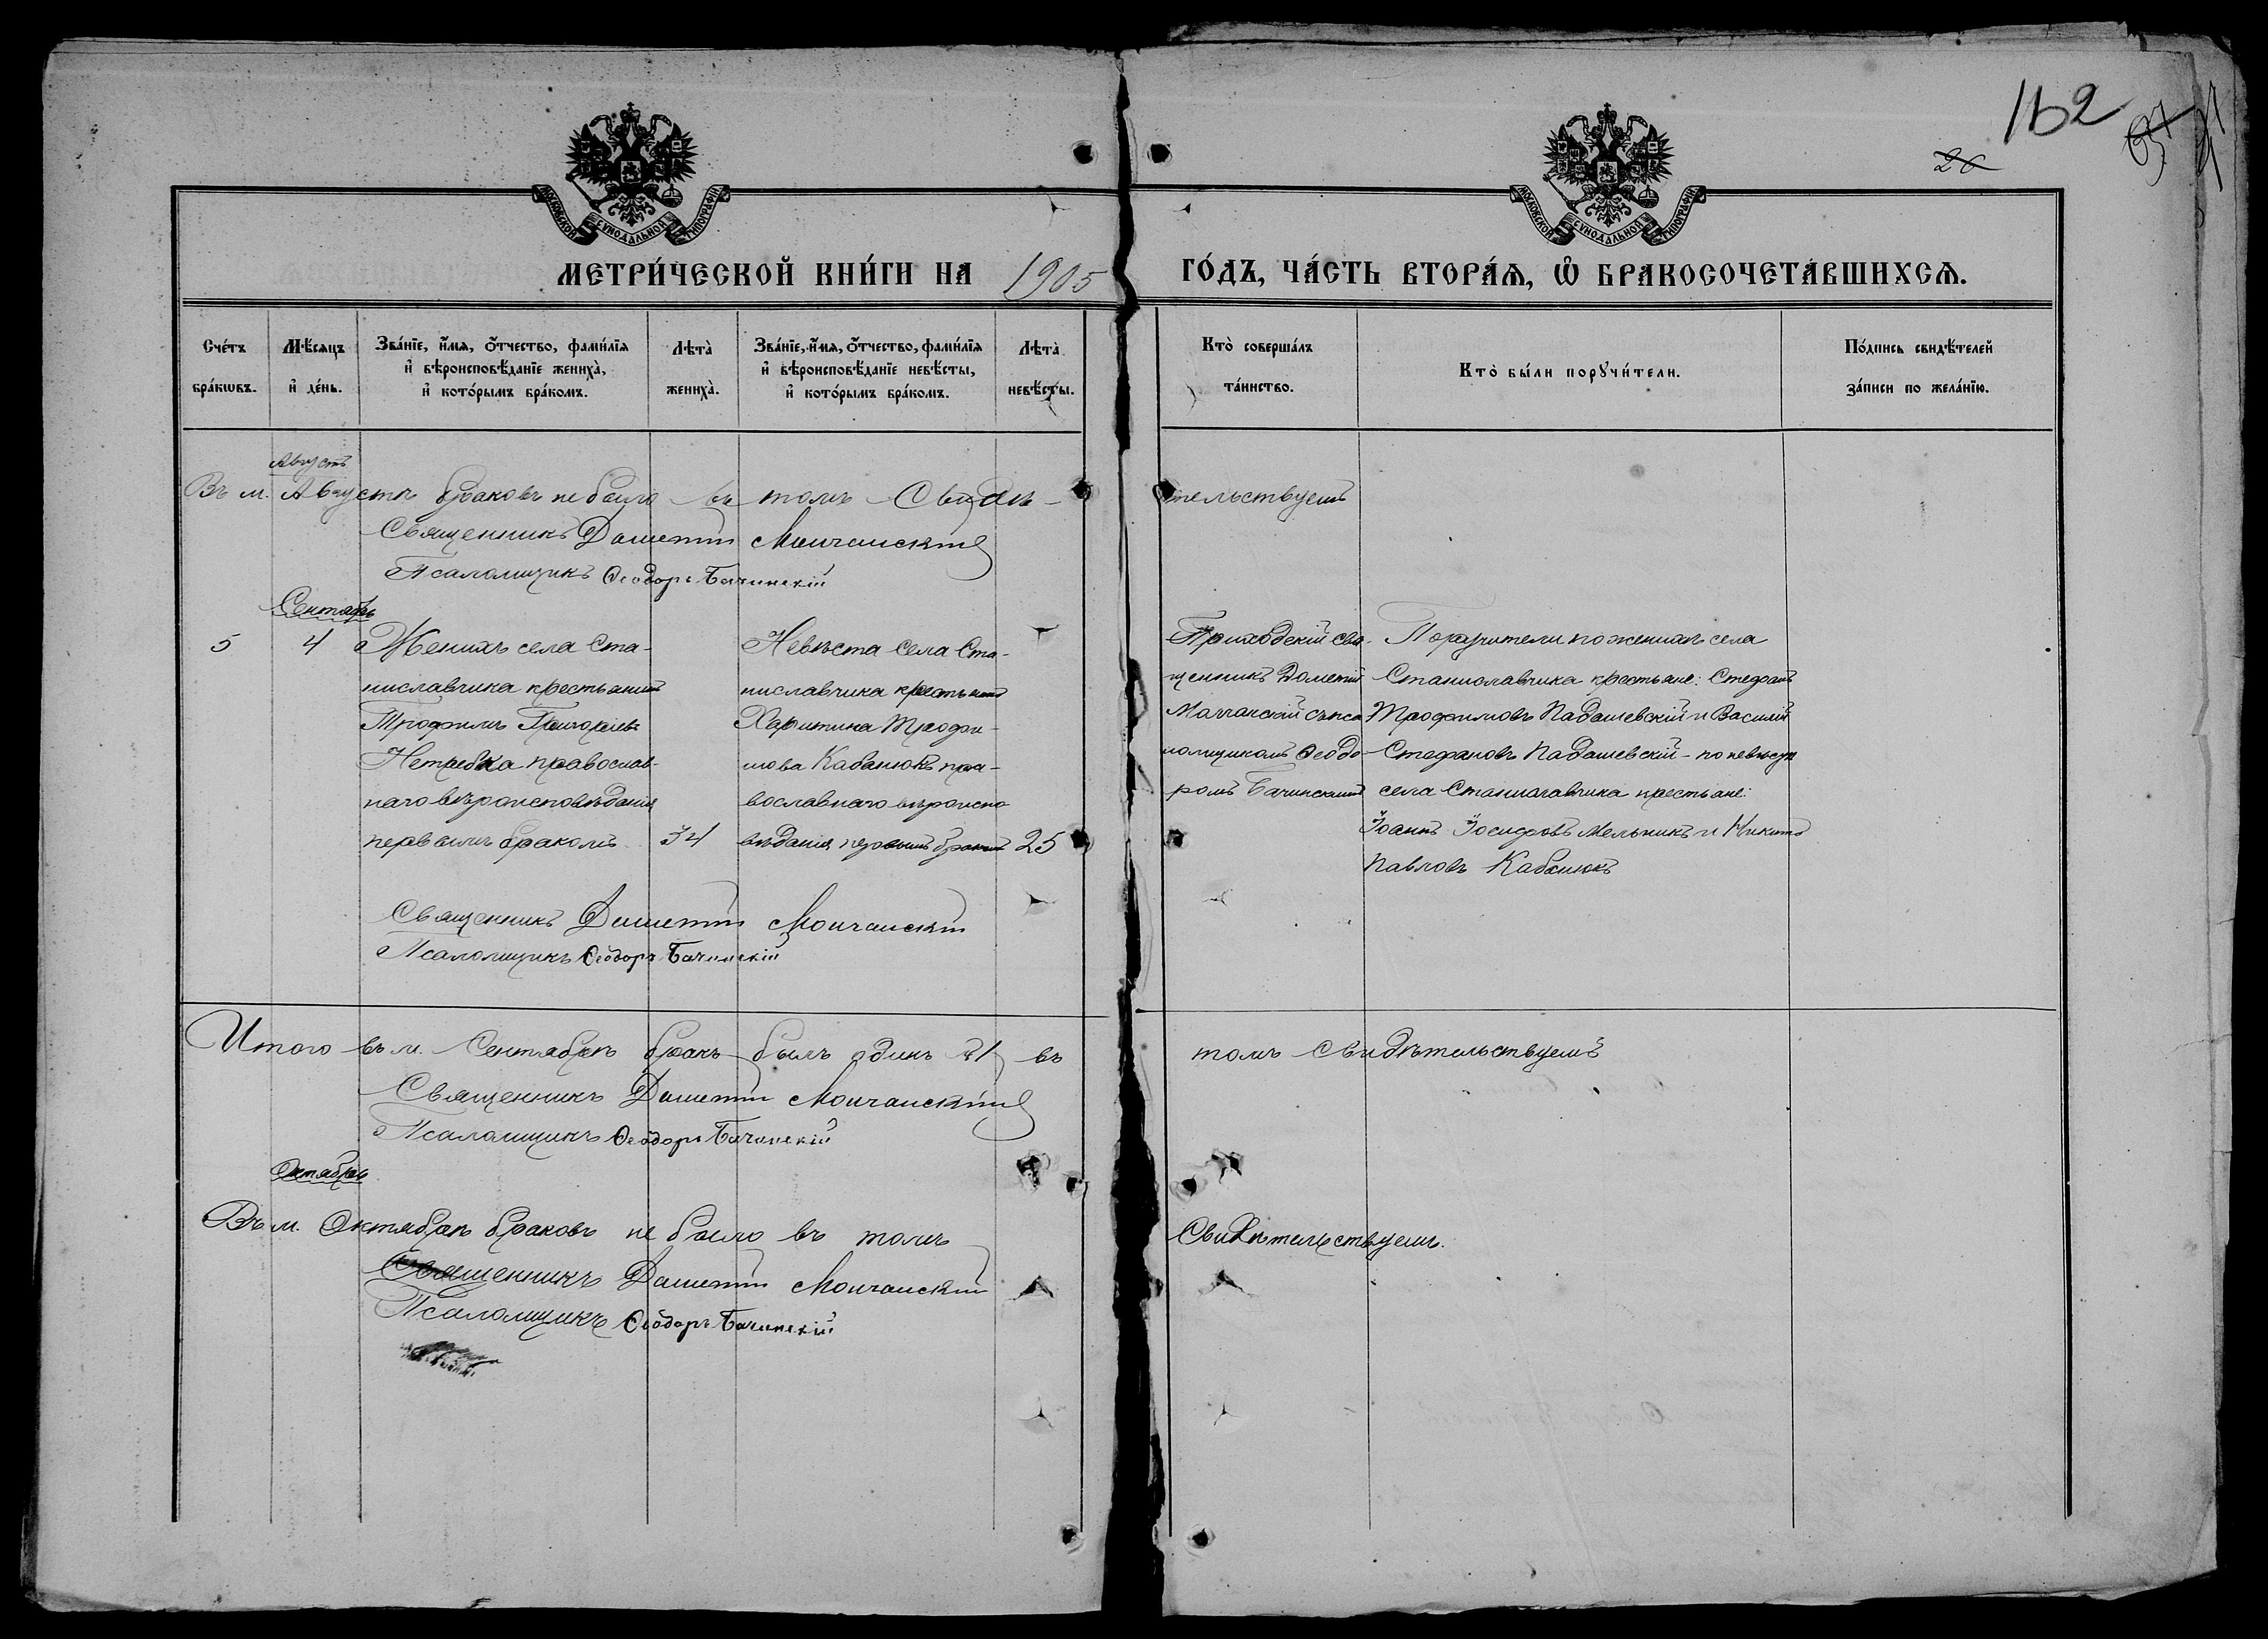 162
26
МОСКОВСКОЙ СѴНОДАЛЬНОЙ ТИПОГРАФІИ
МОСКОВСКОЙ СѴНОДАЛЬНОЙ ТИПОГРАФІИ
МЕТРИ́ЧЕСКОЙ КНИ́ГИ НА 1905 ГО́ДЪ, ЧА́СТЬ ВТОРА́Я, Ѡ҆ БРАКОСОЧЕТА́ВШИХСѦ.
Сче́тъ бра́кѡвъ.
Мѣ́сяцъ и҆ де́нь.
Зва́нїе, и҆́мя, ѻ҆́тчество, фами́лїя и҆ вѣроисповѣ́данїе жениха̀, и҆ кото́рымъ бра́комъ.
Лѣта̀ жениха̀.
Зва́нїе, и҆́мя, ѻ҆́тчество, фами́лїя и҆ вѣроисповѣ́данїе невѣ́сты, и҆ кото́рымъ бра́комъ.
Лѣта̀ невѣ́сты.
Кто̀ соверша́лъ та́инство.
Кто̀ бы́ли порꙋчи́тели.
По́дпись свидѣ́телей за́писи по жела́нїю.
Августъ
Въ м. Августѣ браковъ не было въ томъ Свидѣ-
тельствуемъ
Священникъ Дометій Мончанскій
Псаломщикъ Ѳеодоръ Бачинскій
Сентябрь
5 4 Женихъ села Ста-
ниславчика крестьянинъ
Трофимъ Григоріевъ
Нетребка православ-
наго вѣроисповѣданія
первымъ бракомъ 34
Невѣста села Ста-
ниславчика крестьянка
Харитина Трофи-
мова Кабанюкъ пра-
вославнаго вѣроиспо
вѣданія первымъ бракомъ 25
Приходскій свя-
щенникъ Дометій
Мончанскій съ пса
ломщикомъ Ѳеодо-
ромъ Бачинскимъ
Поручители по женихѣ села
Станиславчика крестьяне: Стефанъ
Трофимовъ Падашевскій и Василій
Стефановъ Падашевскій - по невѣстѣ
села Станиславчика крестьяне:
Іоаннъ Іосифовъ Мельникъ и Никита
Павловъ Кабанюкъ
Священникъ Дометій Мончанскій
Псаломщикъ Ѳеодоръ Бачинскій
Итого въ м. Сентябрѣ бракъ былъ одинъ 1 въ
томъ Свидѣтельствуемъ
Священникъ Дометій Мончанскій
Псаломщикъ Ѳеодоръ Бачинскій
Октябрь
Въ м. Октябрѣ браковъ не было въ томъ
Свидѣтельствуемъ.
Священникъ Дометій Мончанскій
Псаломщикъ Ѳеодоръ Бачинскій